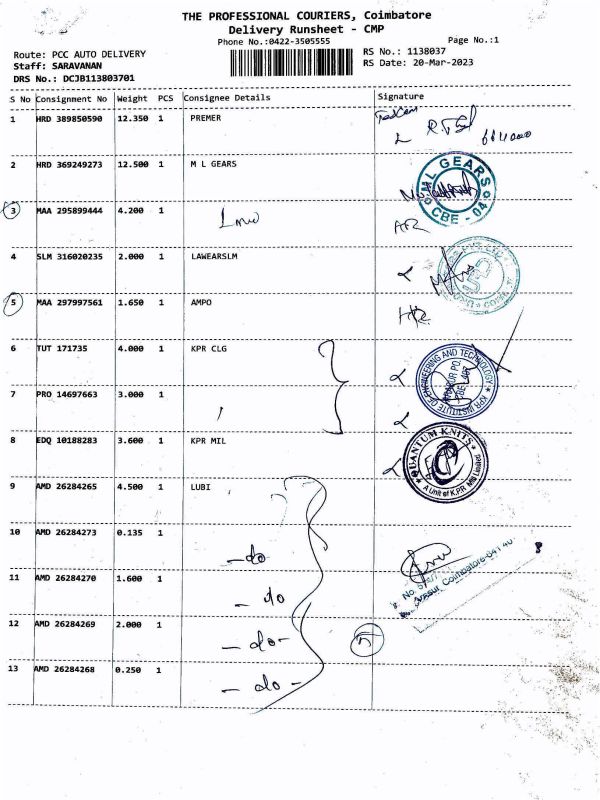 THE PROFESSIONAL COURIERS, Coimbatore
Delivery Runsheet - CMP
Phone No.:0422-3505555
Page No.:1
Route: PCC AUTO DELIVERY
Staff: SARAVANAN
DRS No.: DCJB113803701
RS No.: 1138037
RS Date: 20-Mar-2023
S No Consignment No Weight PCS Consignee Details Signature
1 HRD 389850590 12.350 1 PREMER
2 HRD 369249273 12.500 1 M L GEARS
M L GEARS
CBE - 04
3 MAA 295899444 4.200 1
4 SLM 316020235 2.000 1 LAWEARSLM
5 MAA 297997561 1.650 1 AMPO
6 TUT 171735 4.000 1 KPR CLG
KPR INSTITUTE OF ENGINEERING AND TECHNOLOGY
7 PRO 14697663 3.000 1
8 EDQ 10188283 3.600 1 KPR MIL
QUANTUM KNITS
A Unit of K.P.R. Mill Limited
9 AMD 26284265 4.500 1 LUBI
10 AMD 26284273 0.135 1 - do
11 AMD 26284270 1.600 1 - do
12 AMD 26284269 2.000 1 - do - 5
13 AMD 26284268 0.250 1 - do -